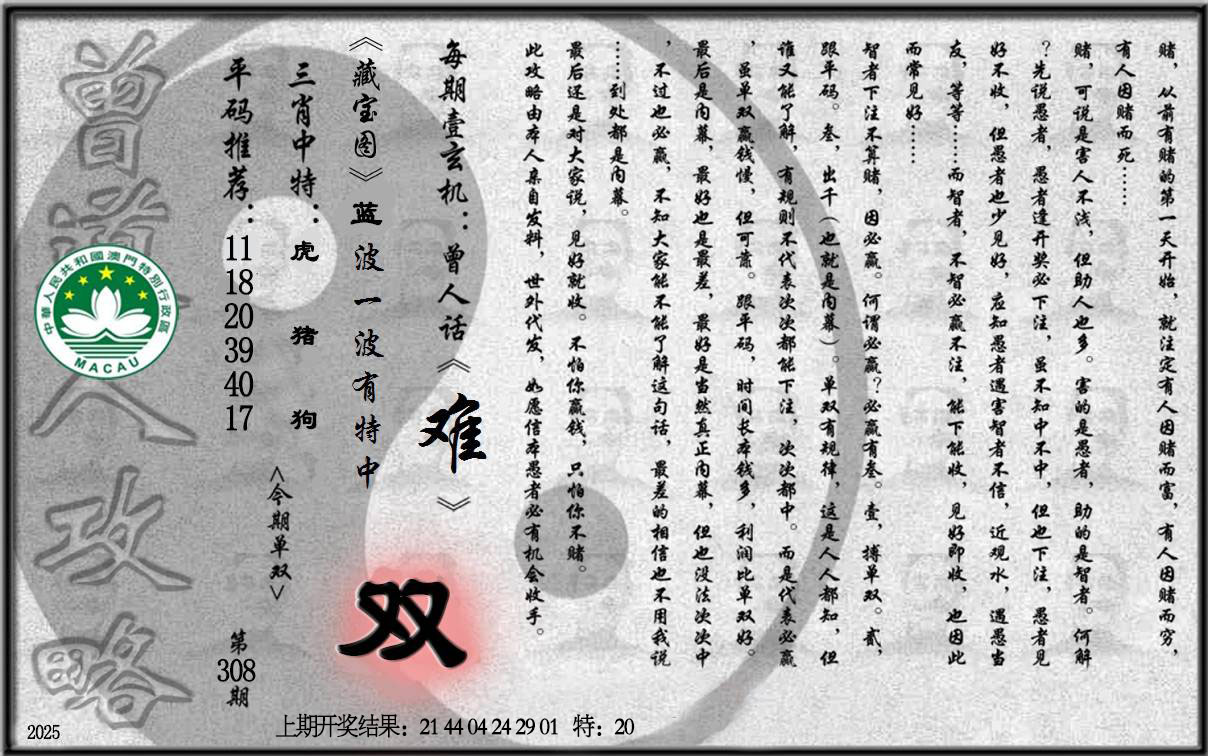 赌，从前有赌的第一天开始，就注定有人因赌而富，有人因赌而穷，
有人因赌而死……
赌，可说是害人不浅，但助人也多。害的是愚者，助的是智者。何解
？先说愚者，愚者逢开奖必下注，虽不知中不中，但也下注，愚者见
好不收，但愚者也少见好，应知愚者遇害智者不信，近观水，遇愚当
友，等等……而智者，不智必赢不注，能下能收，见好即收，也因此
而常见好……
智者下注不算赌，因必赢。何谓必赢？必赢有叁。壹，搏单双。贰，
跟平码。叁，出千（也就是内幕）。单双有规律，这是人人都知，但
谁又能了解，有规则不代表次次都能下注，次次都中。而是代表必赢
，虽单双赢钱慢，但可靠。跟平码，时间长本钱多，利润比单双好。
最后是内幕，最好也是最差，最好是当然真正内幕，但也没法次次中
，不过也必赢，不知大家能不能了解这句话，最差的相信也不用我说
……到处都是内幕。
最后还是对大家说，见好就收。不怕你赢钱，只怕你不赌。
此攻略由本人亲自发料，世外代发，如愿信本愚者必有机会收手。
每期壹玄机：曾人话《难》
《藏宝图》蓝波一波有特中
双
三肖中特：虎 猪 狗
<今期单双>
平码推荐：11 18 20 39 40 17
第308期
曾道人攻略
中華人民共和國澳門特別行政區
MACAU
2025
上期开奖结果：21 44 04 24 29 01 特：20